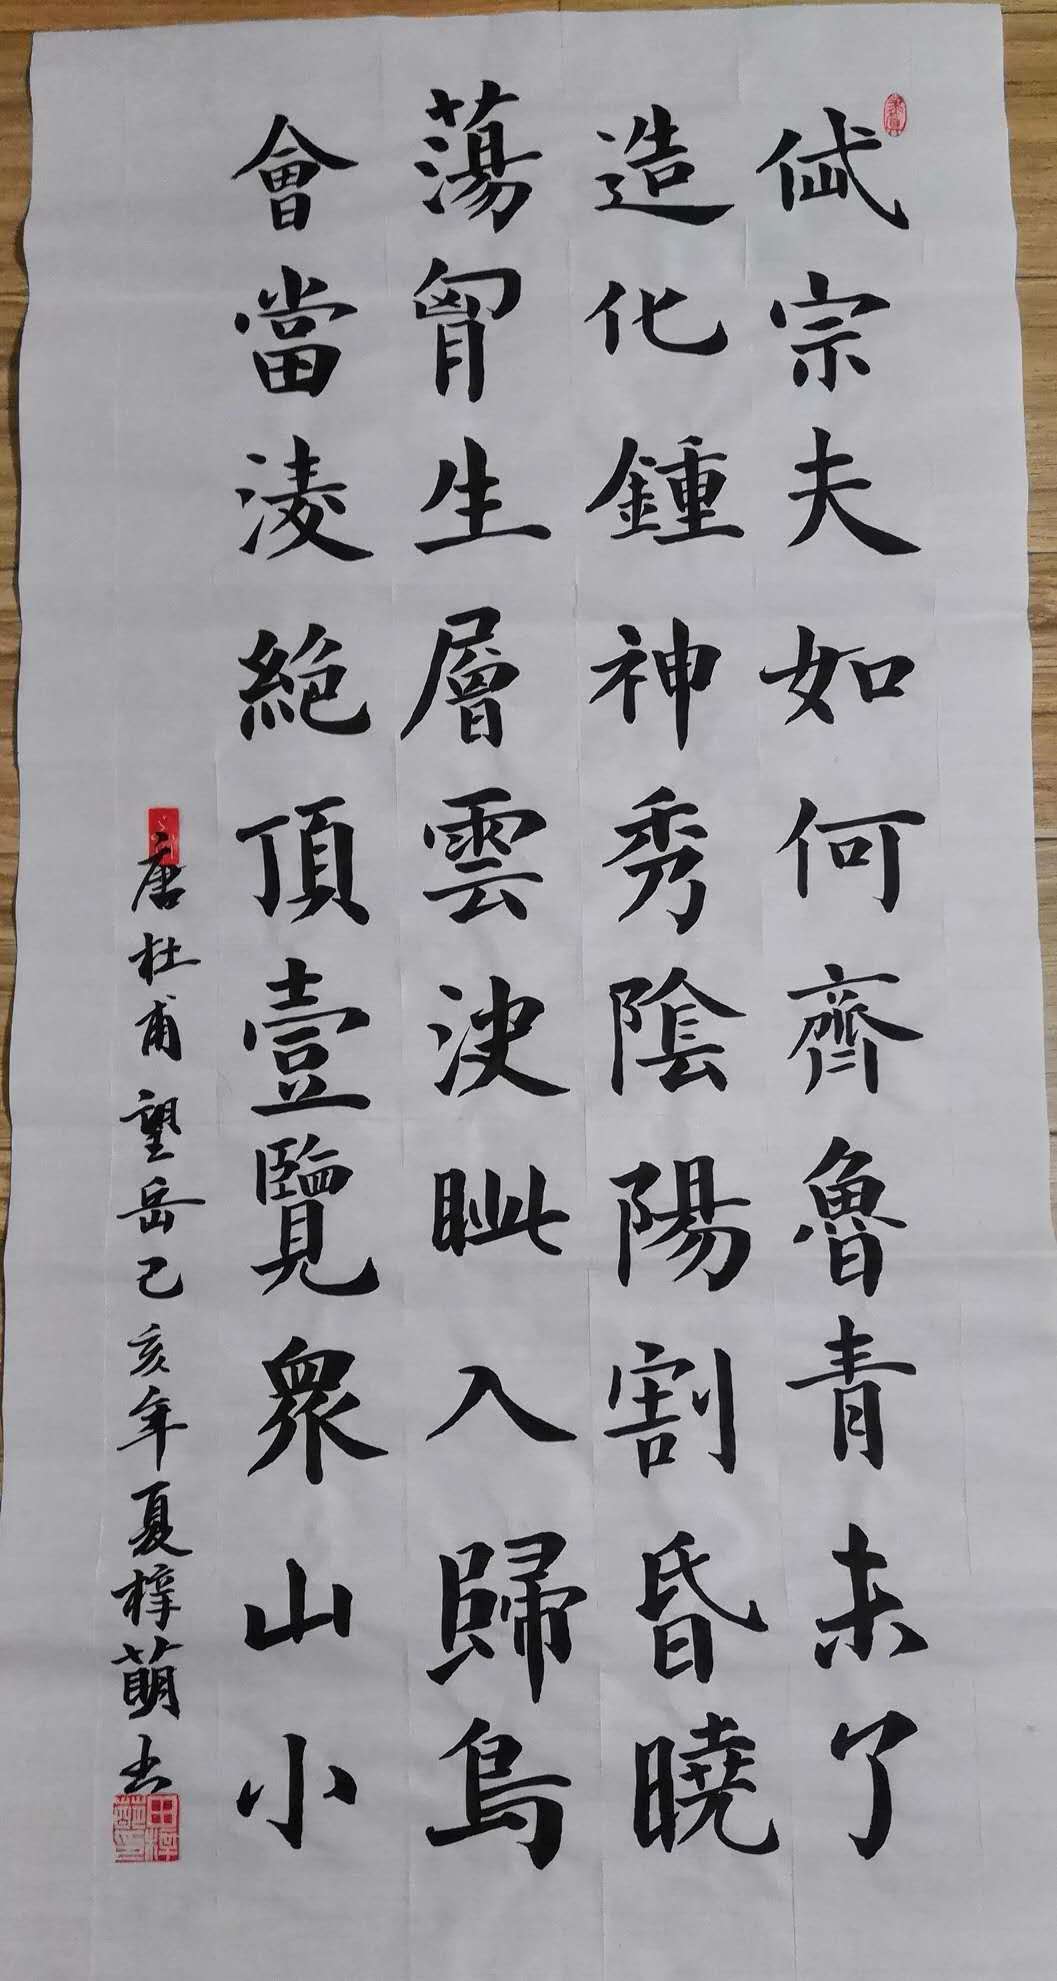 岱宗夫如何齊魯青未了
造化鍾神秀陰陽割昏曉
蕩胷生層雲決眦入歸鳥
會當淩絶頂壹覽眾山小
唐杜甫望岳己亥年夏梓萌书
田梓萌印